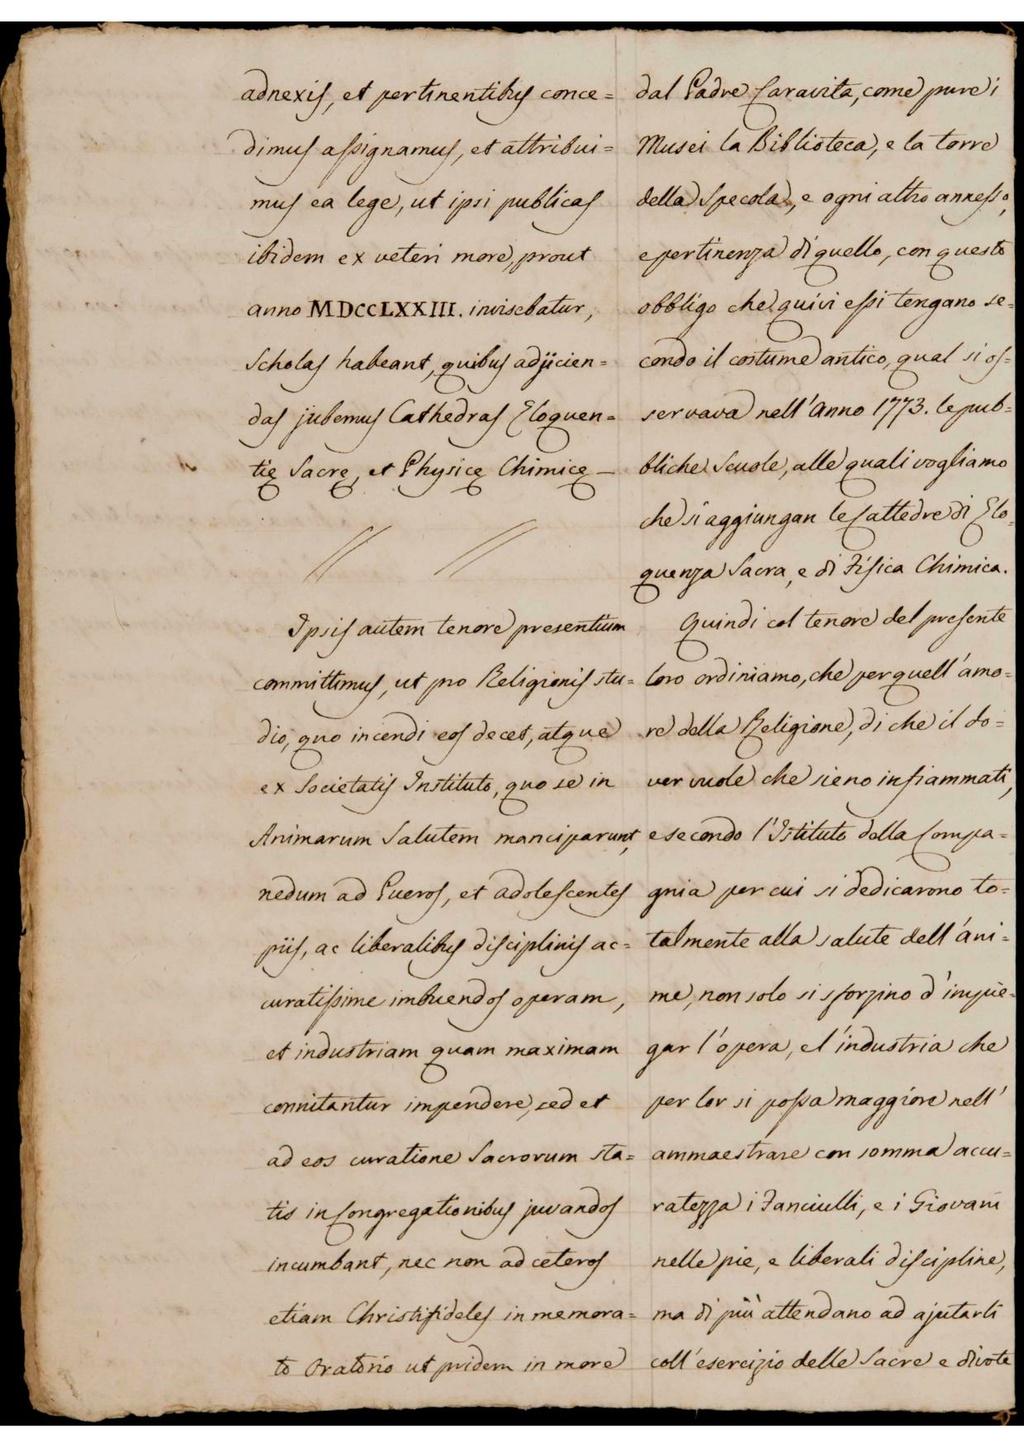 adnexis, et pertinentibus conce=
dimus assignamus, et attribui=
mus ea lege, ut ipsi publicas
ibidem ex veteri more, prout
anno MDCCLXXIII. invisebatur,
Scholas habeant, quibus adjicien=
das jubemus Cathedras Eloquen=
tię Sacrę, et Physicę Chimicę —
// //
Ipsis autem tenore presentium
committimus, ut pro Religionis stu=
dio, quo incendi eos decet, atque
ex Societatis Instituto, quo se in
Animarum Salutem manciparunt,
nedum ad Pueros, et adolescentes
piis, ac liberalibus disciplinis ac=
curatissime imbuendos operam,
et industriam quam maximam
connitantur impendere, sed et
ad eos curatione Sacrorum sta=
tis in Congregationibus juvandos
incumbant, nec non ad ceteros
etiam Christifideles in memora=
to Oratorio ut pridem in more
dal Padre Caravita, come pure i
Musei la Biblioteca, e la torre
della Specola, e ogni altro annesso,
e pertinenza di quello, con questo
obbligo che quivi essi tengano se=
condo il costume antico, qual si os=
servava nell'Anno 1773. le pub=
bliche Scuole, alle quali vogliamo
che si aggiungan le Cattedre di Elo=
quenza Sacra, e di Fisica Chimica.
Quindi col tenore del presente
loro ordiniamo, che per quell'amo=
re della Religione, di che il do=
ver vuole che sieno infiammati,
e secondo l'Istituto della Compa=
gnia per cui si dedicarono to=
talmente alla salute dell'ani=
me, non solo si sforzino d'impie=
gar l'opera, e l'industria che
per lor si possa maggiore nell'
ammaestrare con somma accu=
ratezza i Fanciulli, e i Giovani
nelle pie, e liberali discipline,
ma di più attendano ad ajutarli
coll'esercizio delle Sacre e divote